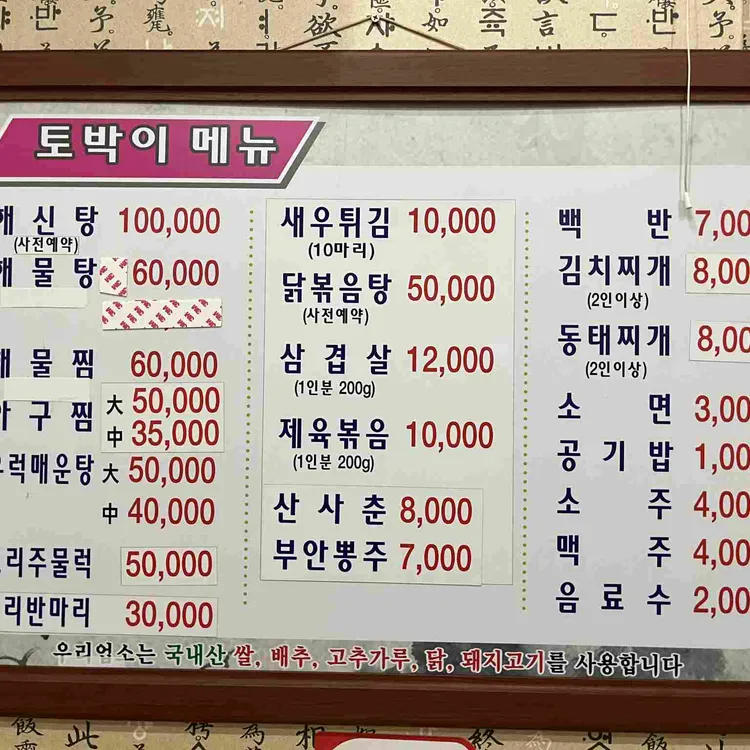 토박이 메뉴
해신탕 100,000
(사전예약)
해물탕 60,000
해물찜 60,000
아구찜 大 50,000
中 35,000
우럭매운탕 大 50,000
中 40,000
오리주물럭 50,000
오리반마리 30,000
새우튀김 10,000
(10마리)
닭볶음탕 50,000
(사전예약)
삼겹살 12,000
(1인분 200g)
제육볶음 10,000
(1인분 200g)
산사춘 8,000
부안뽕주 7,000
백반 7,00
김치찌개 8,00
(2인이상)
동태찌개 8,00
(2인이상)
소면 3,00
공기밥 1,00
소주 4,00
맥주 4,00
음료수 2,00
우리업소는 국내산 쌀, 배추, 고추가루, 닭, 돼지고기를 사용합니다